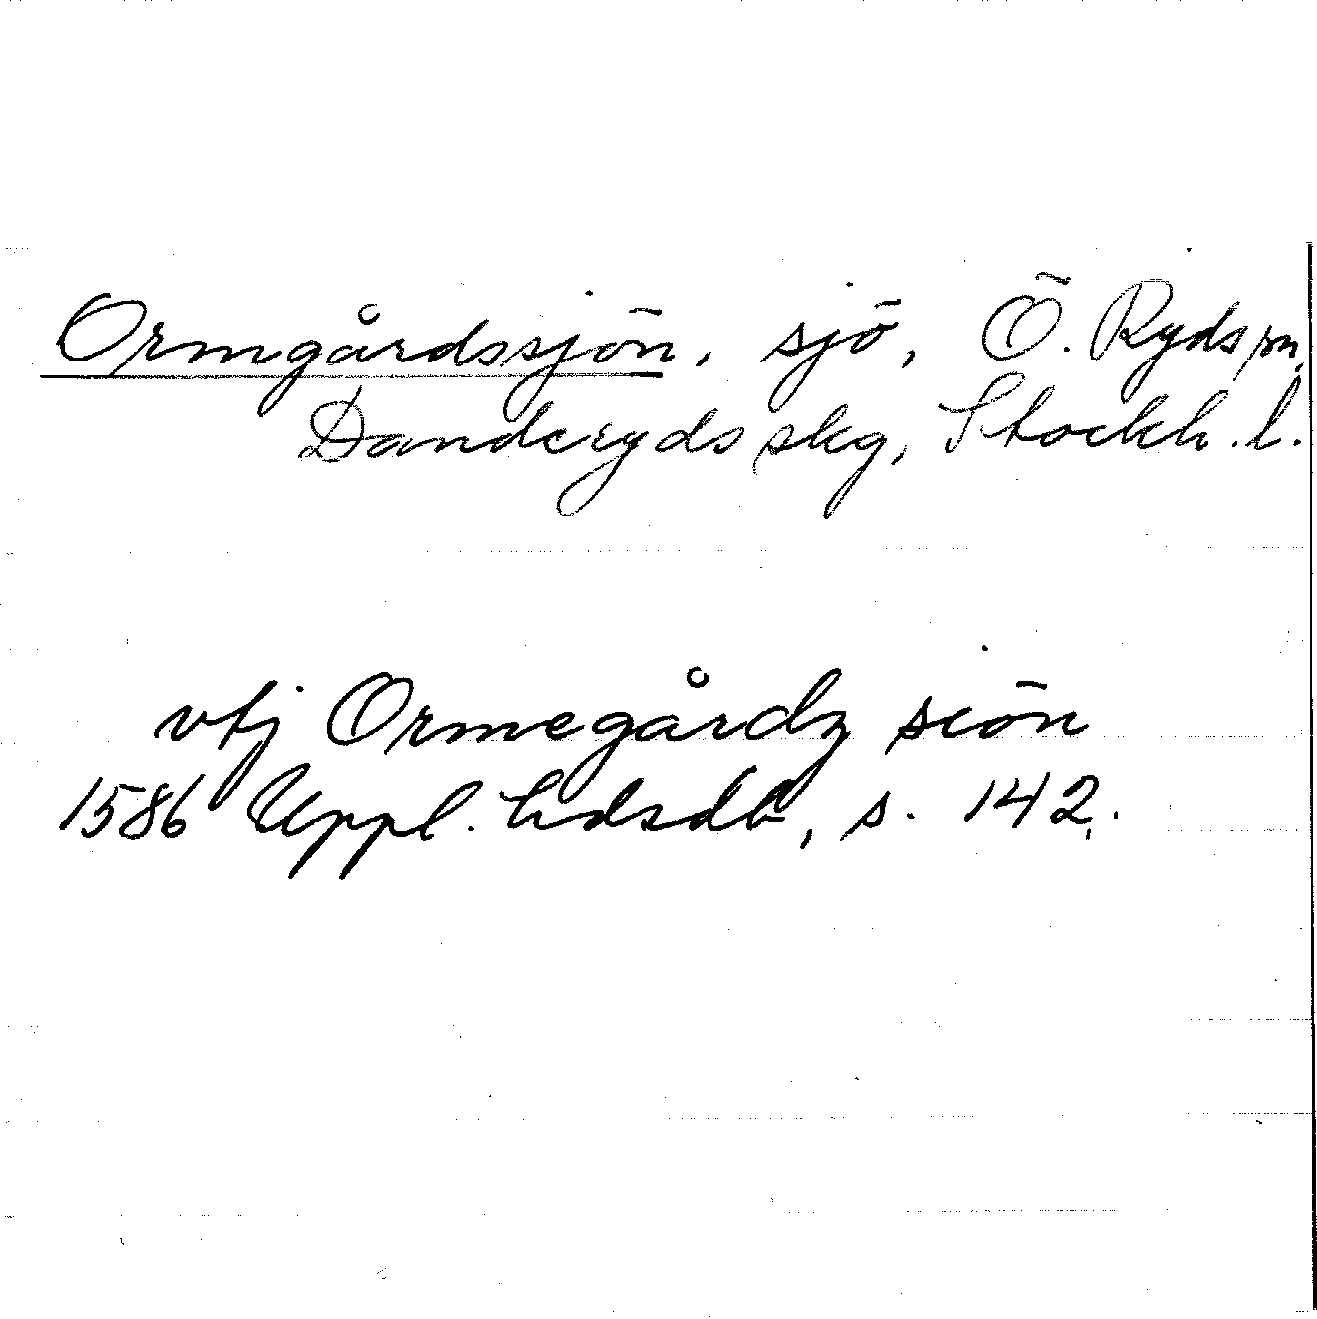 Ormgårdssjön, sjö, Ö. Ryds sn,
Danderyds skg, Stockh. l.
vtj Ormegårdz siön
1586 Uppl. hdsdb, s. 142.